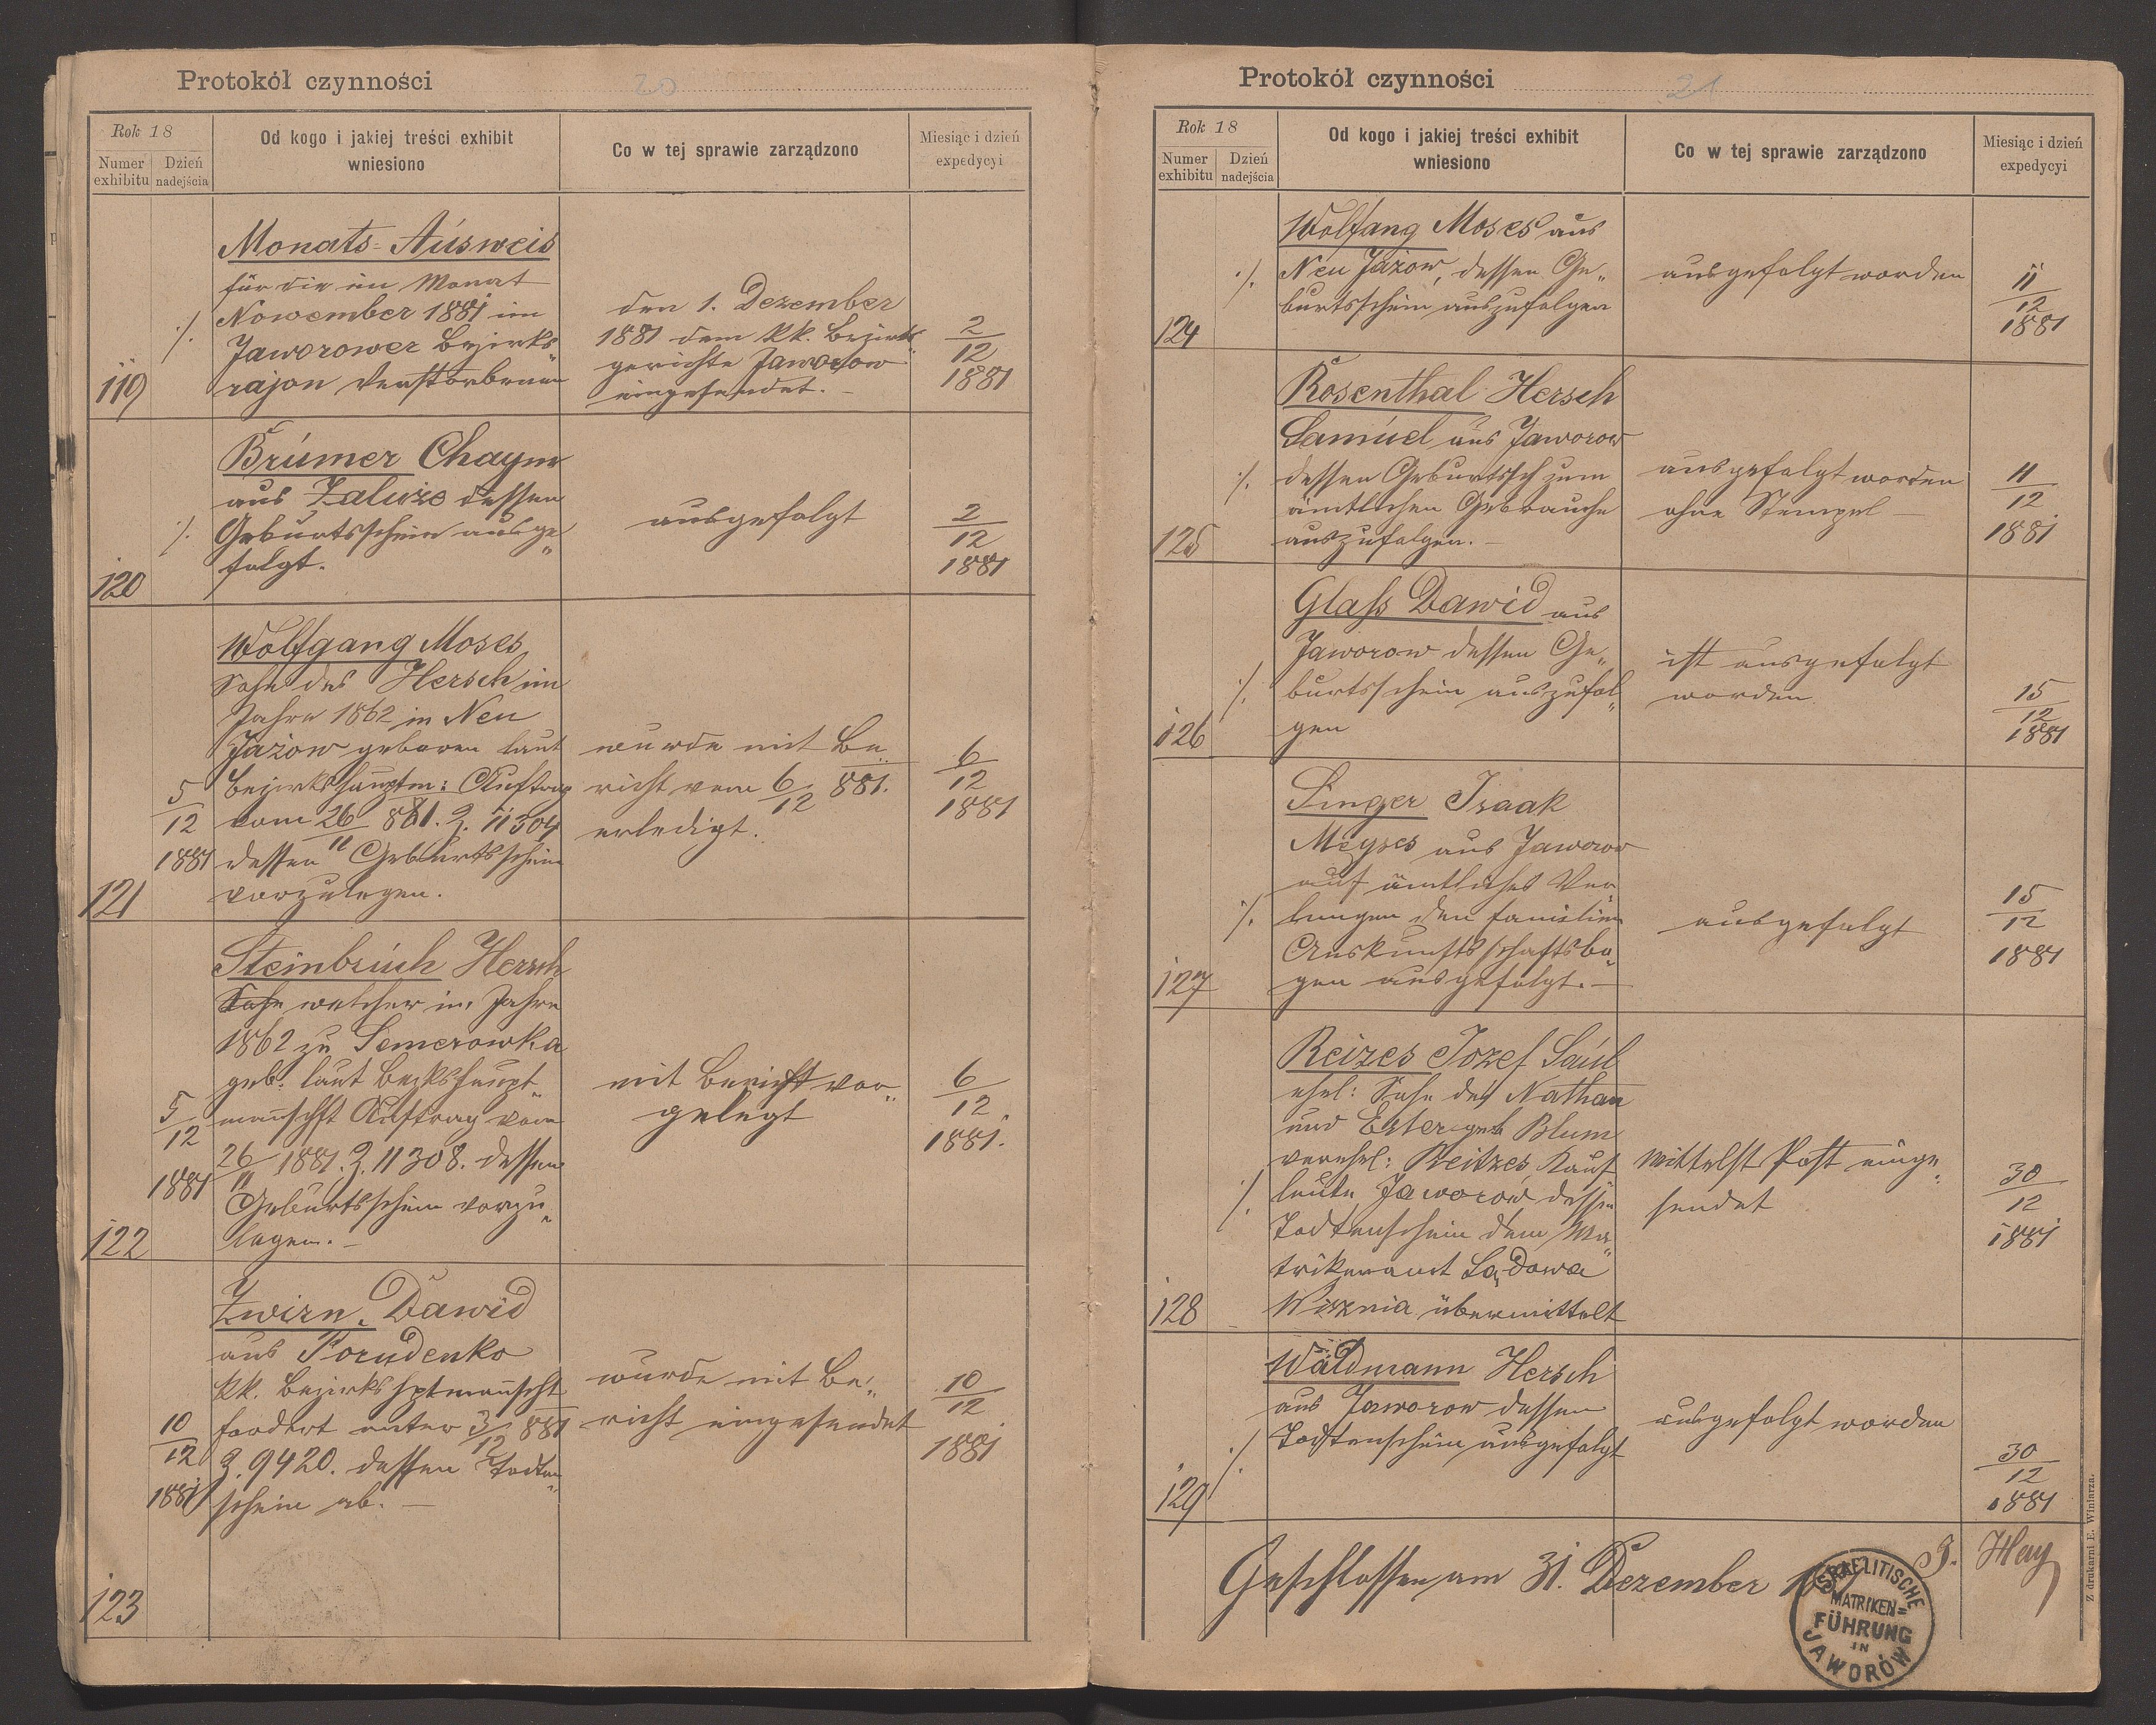 Protokół czynności
20
Rok 18
Numer exhibitu
Dzień nadejścia
Od kogo i jakiej treści exhibit
wniesiono
Co w tej sprawie zarządzono
Miesiąc i dzień
expedycyi
119
./.
Monats-Ausweis
für die im Monat
Nowember 1881 im
Jaworower Bezirks„
rajon Verstorbenen
den 1. Dezember
1881 dem kk. Bezirks„
gerichte Jaworow
eingesendet.
2
12
1881
120
./.
Brumer Chaym
aus Załuże dessen
Geburtsschein ausge„
folgt.
ausgefolgt
2
12
1881
121
5
12
1881
Wolfgang Moses
Sohn des Hersch im
Jahre 1862 in Neu
Jażow geboren laut
Bezirkshauptm: Auftrag
vom 26/11 881. Z. 11304
dessen Geburtsschein
vorzulegen.
wurde mit Be„
richt vom 6/12 881.
erledigt.
6
12
1881
122
5
12
1881
Steinbruch Hersch
Sohn welcher im Jahre
1862 zu Semerowka
geb. laut Bezkshaupt„
mannschft Auftrag vom
26/11 1881. Z. 11308. dessen
Geburtsschein vorzu„
legen.—
mit Bericht vor„
gelegt
6
12
1881.
123
10
12
1881
Zwirn Dawid
aus Porudenko
kk. Bezirkshptmannscht
fordert unter 3/12 881
Z. 9420. dessen Todten„
schein ab.—
wurde mit Be„
richt eingesendet
10
12
1881
Protokół czynności
21
Rok 18
Numer exhibitu
Dzień nadejścia
Od kogo i jakiej treści exhibit
wniesiono
Co w tej sprawie zarządzono
Miesiąc i dzień
expedycyi
124
./.
Wolfang Moses aus
Neu Jażow, dessen Ge„
burtsschein auszufolgen
ausgefolgt worden
11
12
1881
125
./.
Rosenthal Hersch
Samuel aus Jaworow
dessen Geburtssch zum
ämtlichen Gebrauche
auszufolgen.—
ausgefolgt worden
ohne Stempel—
11
12
1881
126
./.
Glass Dawid aus
Jaworow dessen Ge„
burtsschein auszufol„
gen
ist ausgefolgt
worden
15
12
1881
127
./.
Singer Isaak
Meyses aus Jaworow
auf ämtliches Ver„
langen den Familien
Auskunftsschaftsbo„
gen ausgefolgt.—
ausgefolgt
15
12
1881
128
./.
Reizes Jozef Saul
ehel: Sohn des Nathan
und Ester geb Blum
verehel: Reitzes Kauf
leute Jaworow dessen
Todtenschein dem Ma„
trikenamt Sądowa
Wisznia übermittelt
Mittelst Post einge„
sendet
30
12
1881
129
./.
Waldmann Hersch
aus Jaworow dessen
Todtenschein ausgefolgt
ausgefolgt worden
30
12
1881
Geschlossen am 31. Dezember
ISRAELITISCHE
MATRIKEN=
FÜHRUNG
IN
JAWORÓW
Z drukarni E. Winiarza.